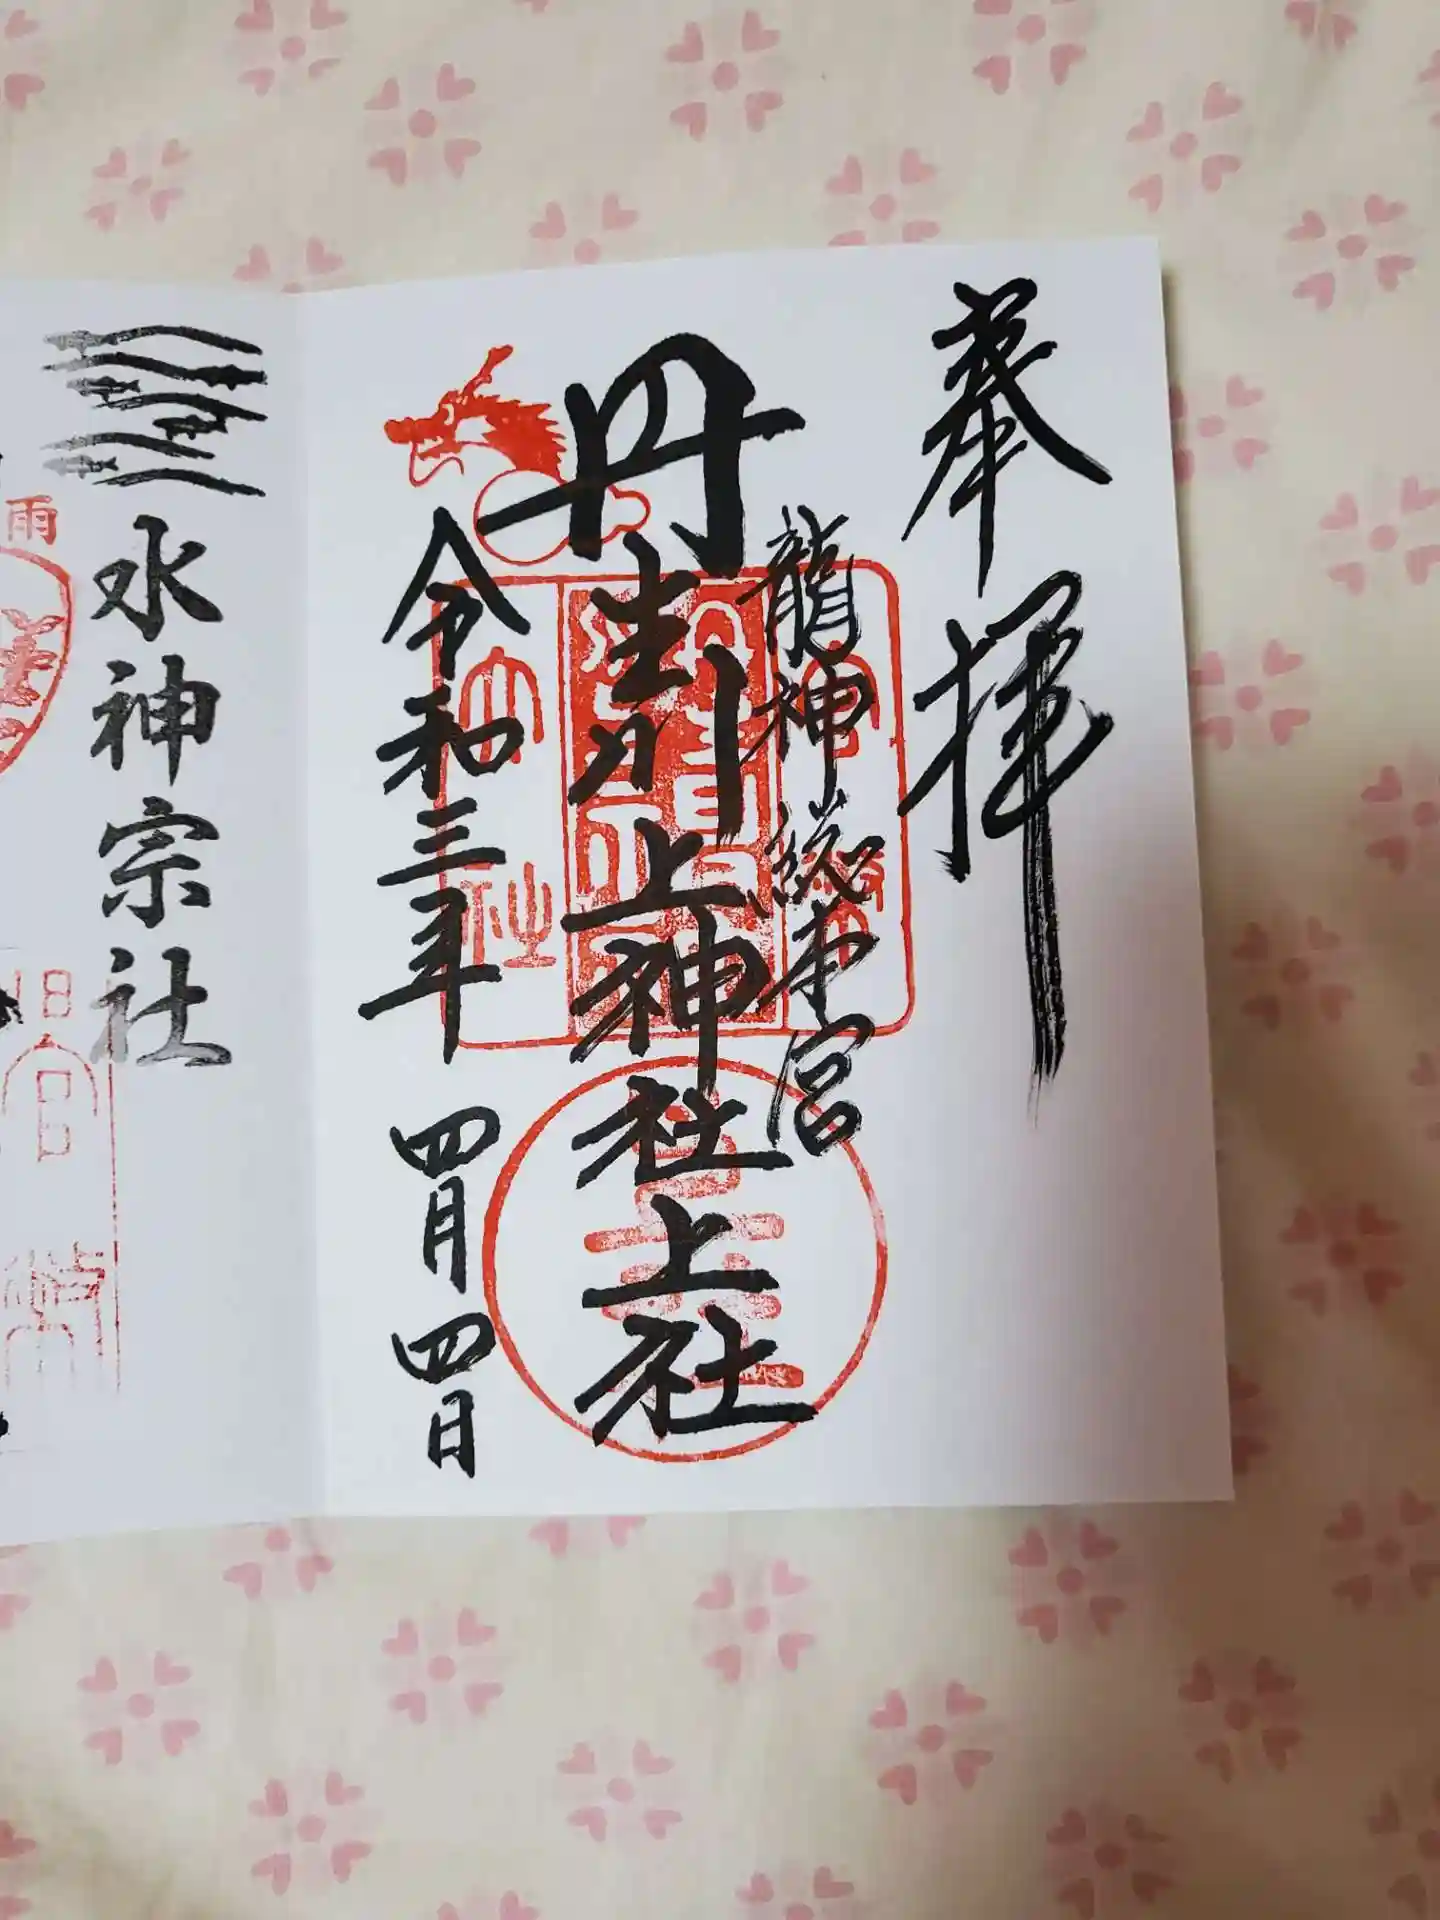 奉拝
龍神総本宮
丹生川上神社上社
令和三年四月四日
水神宗社
雨